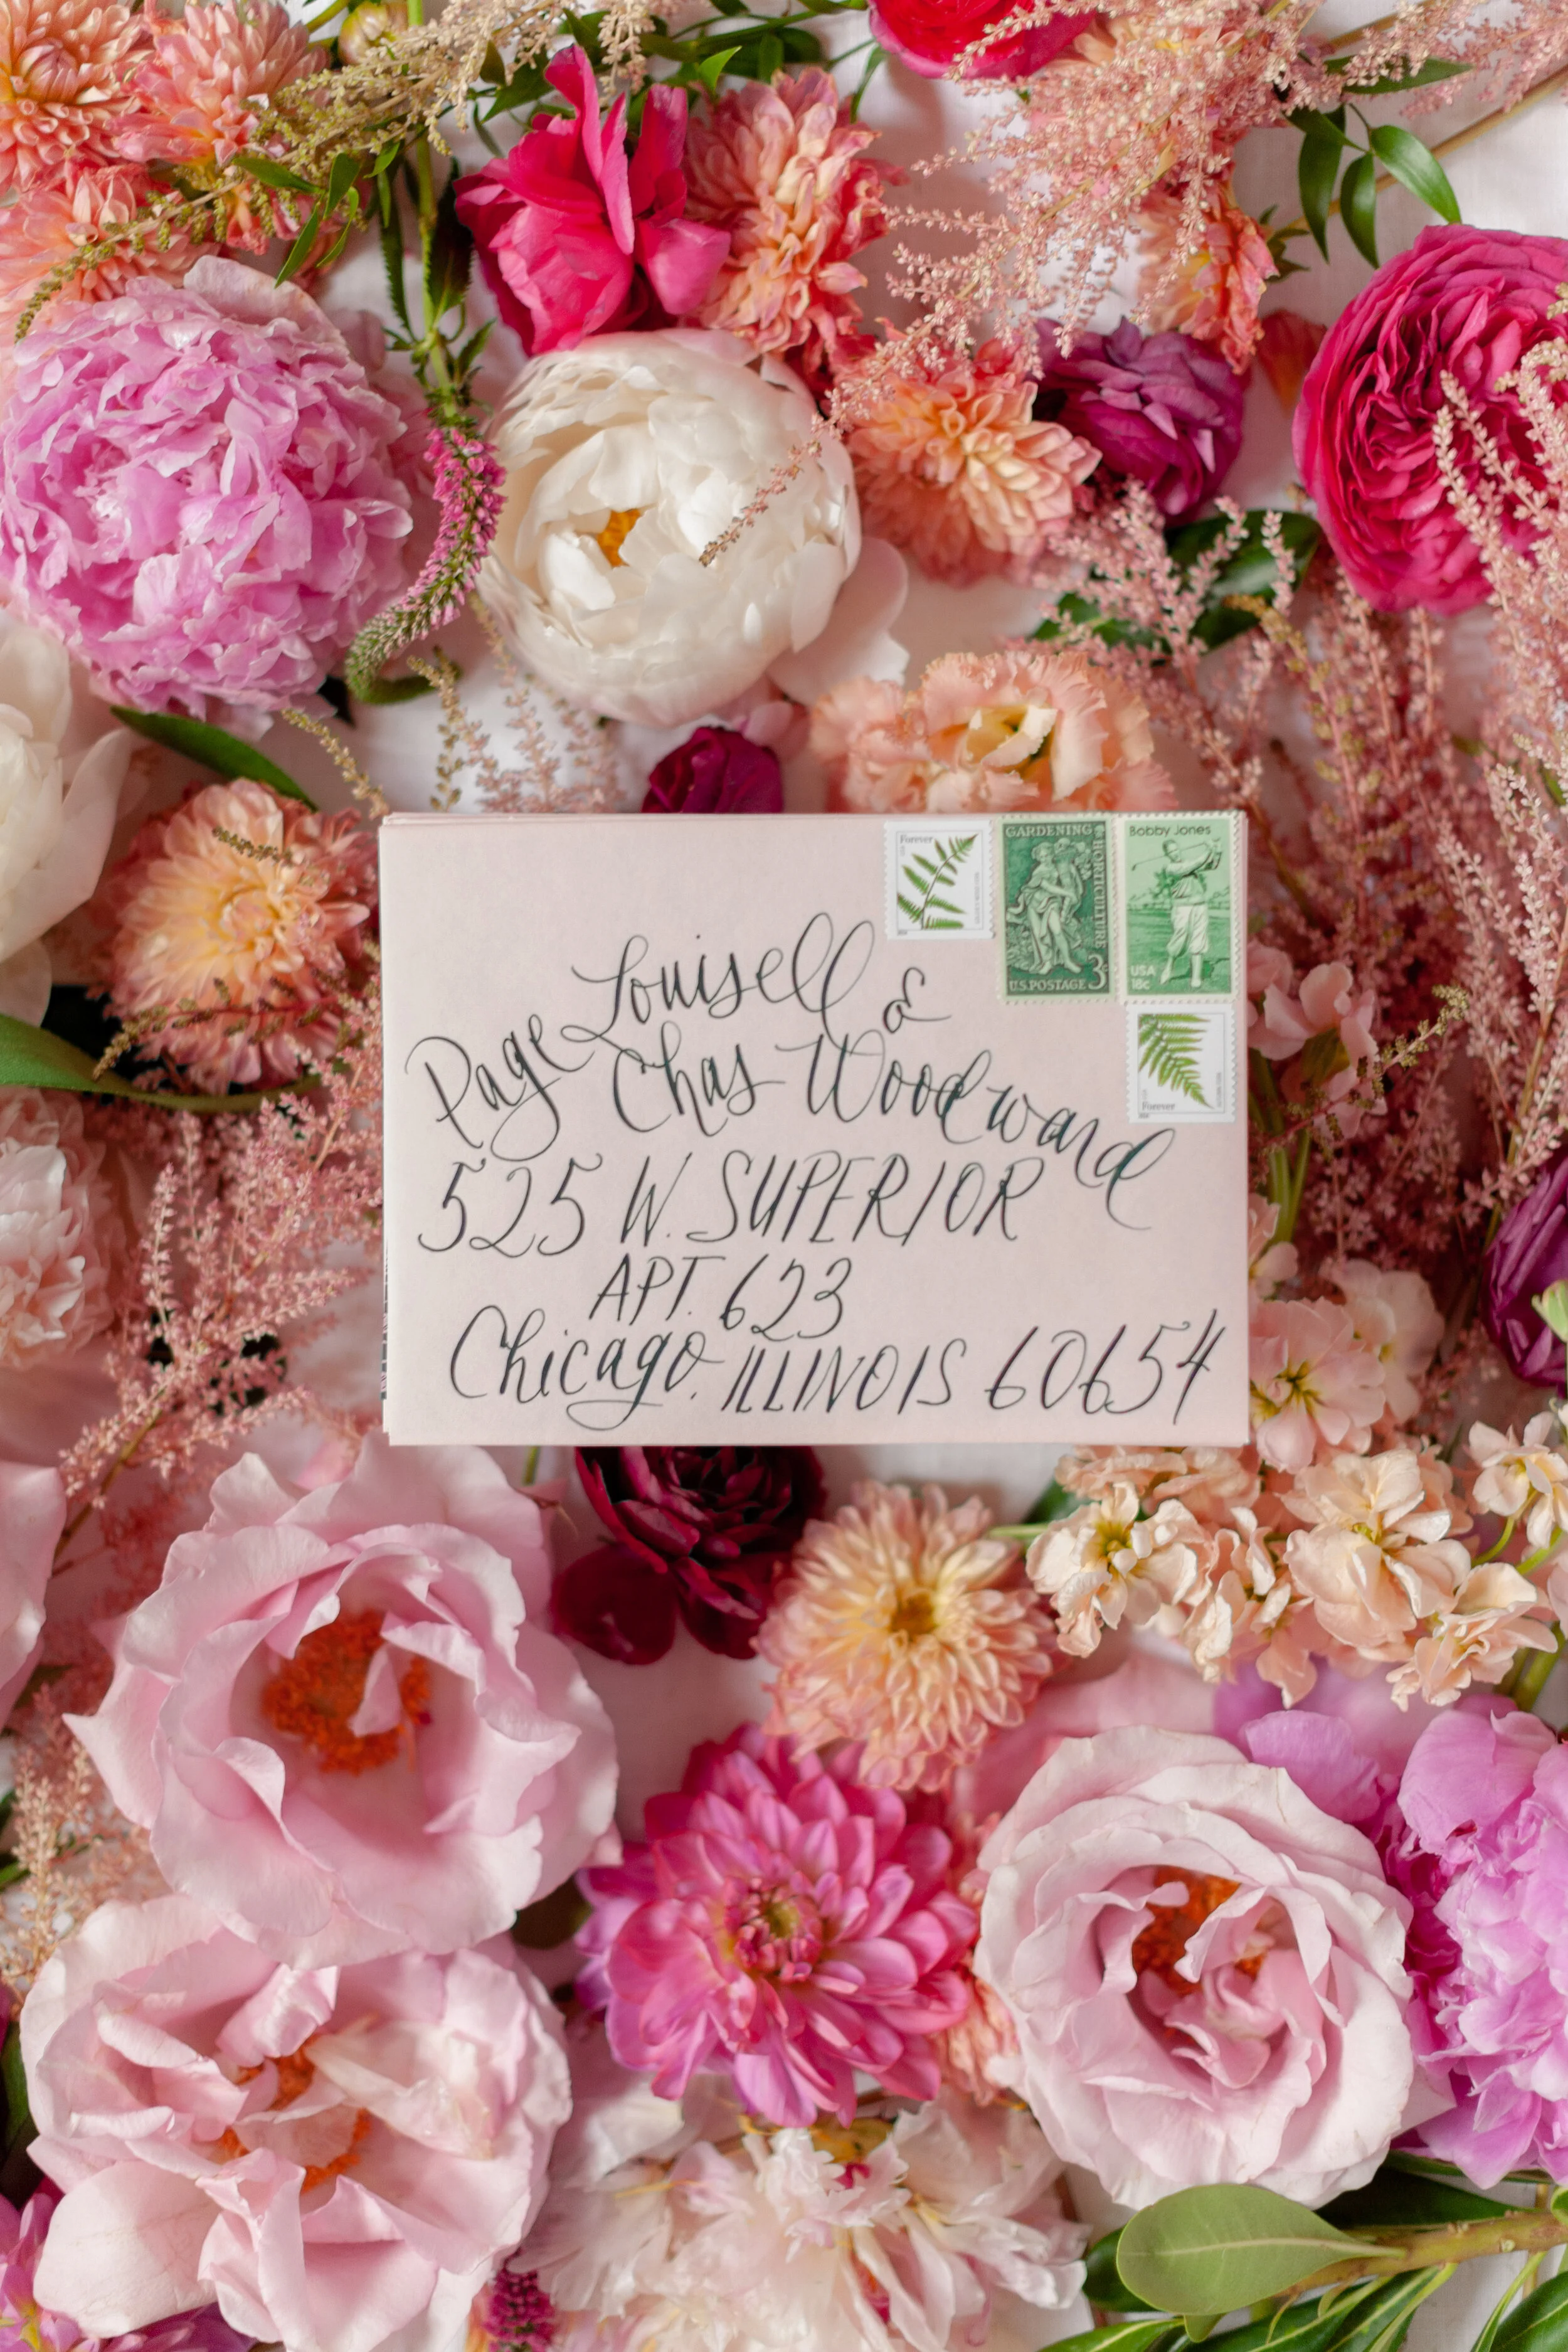 Forever
GARDENING
HORTICULTURE
3¢
U.S. POSTAGE
Bobby Jones
USA
18c
Forever
Page Louisell
&
Chas Woodward
525 W. SUPERIOR
APT. 623
Chicago, ILLINOIS 60654